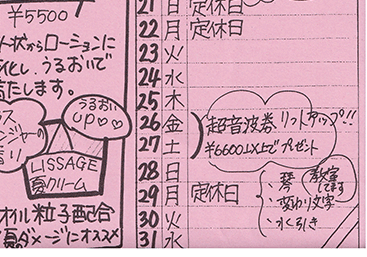 ¥5500
ト状からローションに
化し、うるおいで
たします。
うるおい
UP♡♡
LISSAGE
夏クリーム
オイル粒子配合
夏ダメージにオススメ
21 日 定休日
22 月 定休日
23 火
24 水
25 木
26 金
27 土
超音波券 リフトアップ!!
¥6600以上でプレゼント
28 日
29 月 定休日
30 火
31 水
・琴
教室
してます
・変わり文字
・水引き